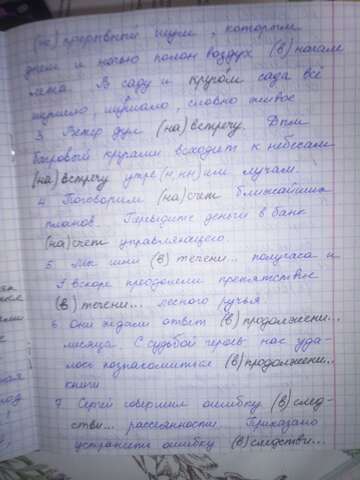 (не) прерывный шум, которым
днём и ночью полон воздух (в) начале
лета. В саду и кругом сада всё
шумело, словно живое
3. Ветер дул (на) встречу. Дым
багровый кругами всходит к небесам
(на) встречу утре(н, нн)им лучам.
4 Поговорим (на) счет ближайших
планов. Переведите деньги в банк
(на) счет управляющего.
5. Мы шли (в) течени... получаса и
вскоре преодолели препятствие
(в) течени... лесного ручья.
6 они ждали ответ (в) продолжени...
месяца. С судьбой героев нас уда-
лось познакомиться (в) продолжени...
книги
7 Сергей совершил ошибку (в) след-
стви... рассеянности. Приказано
устранить ошибку (в) следстви...